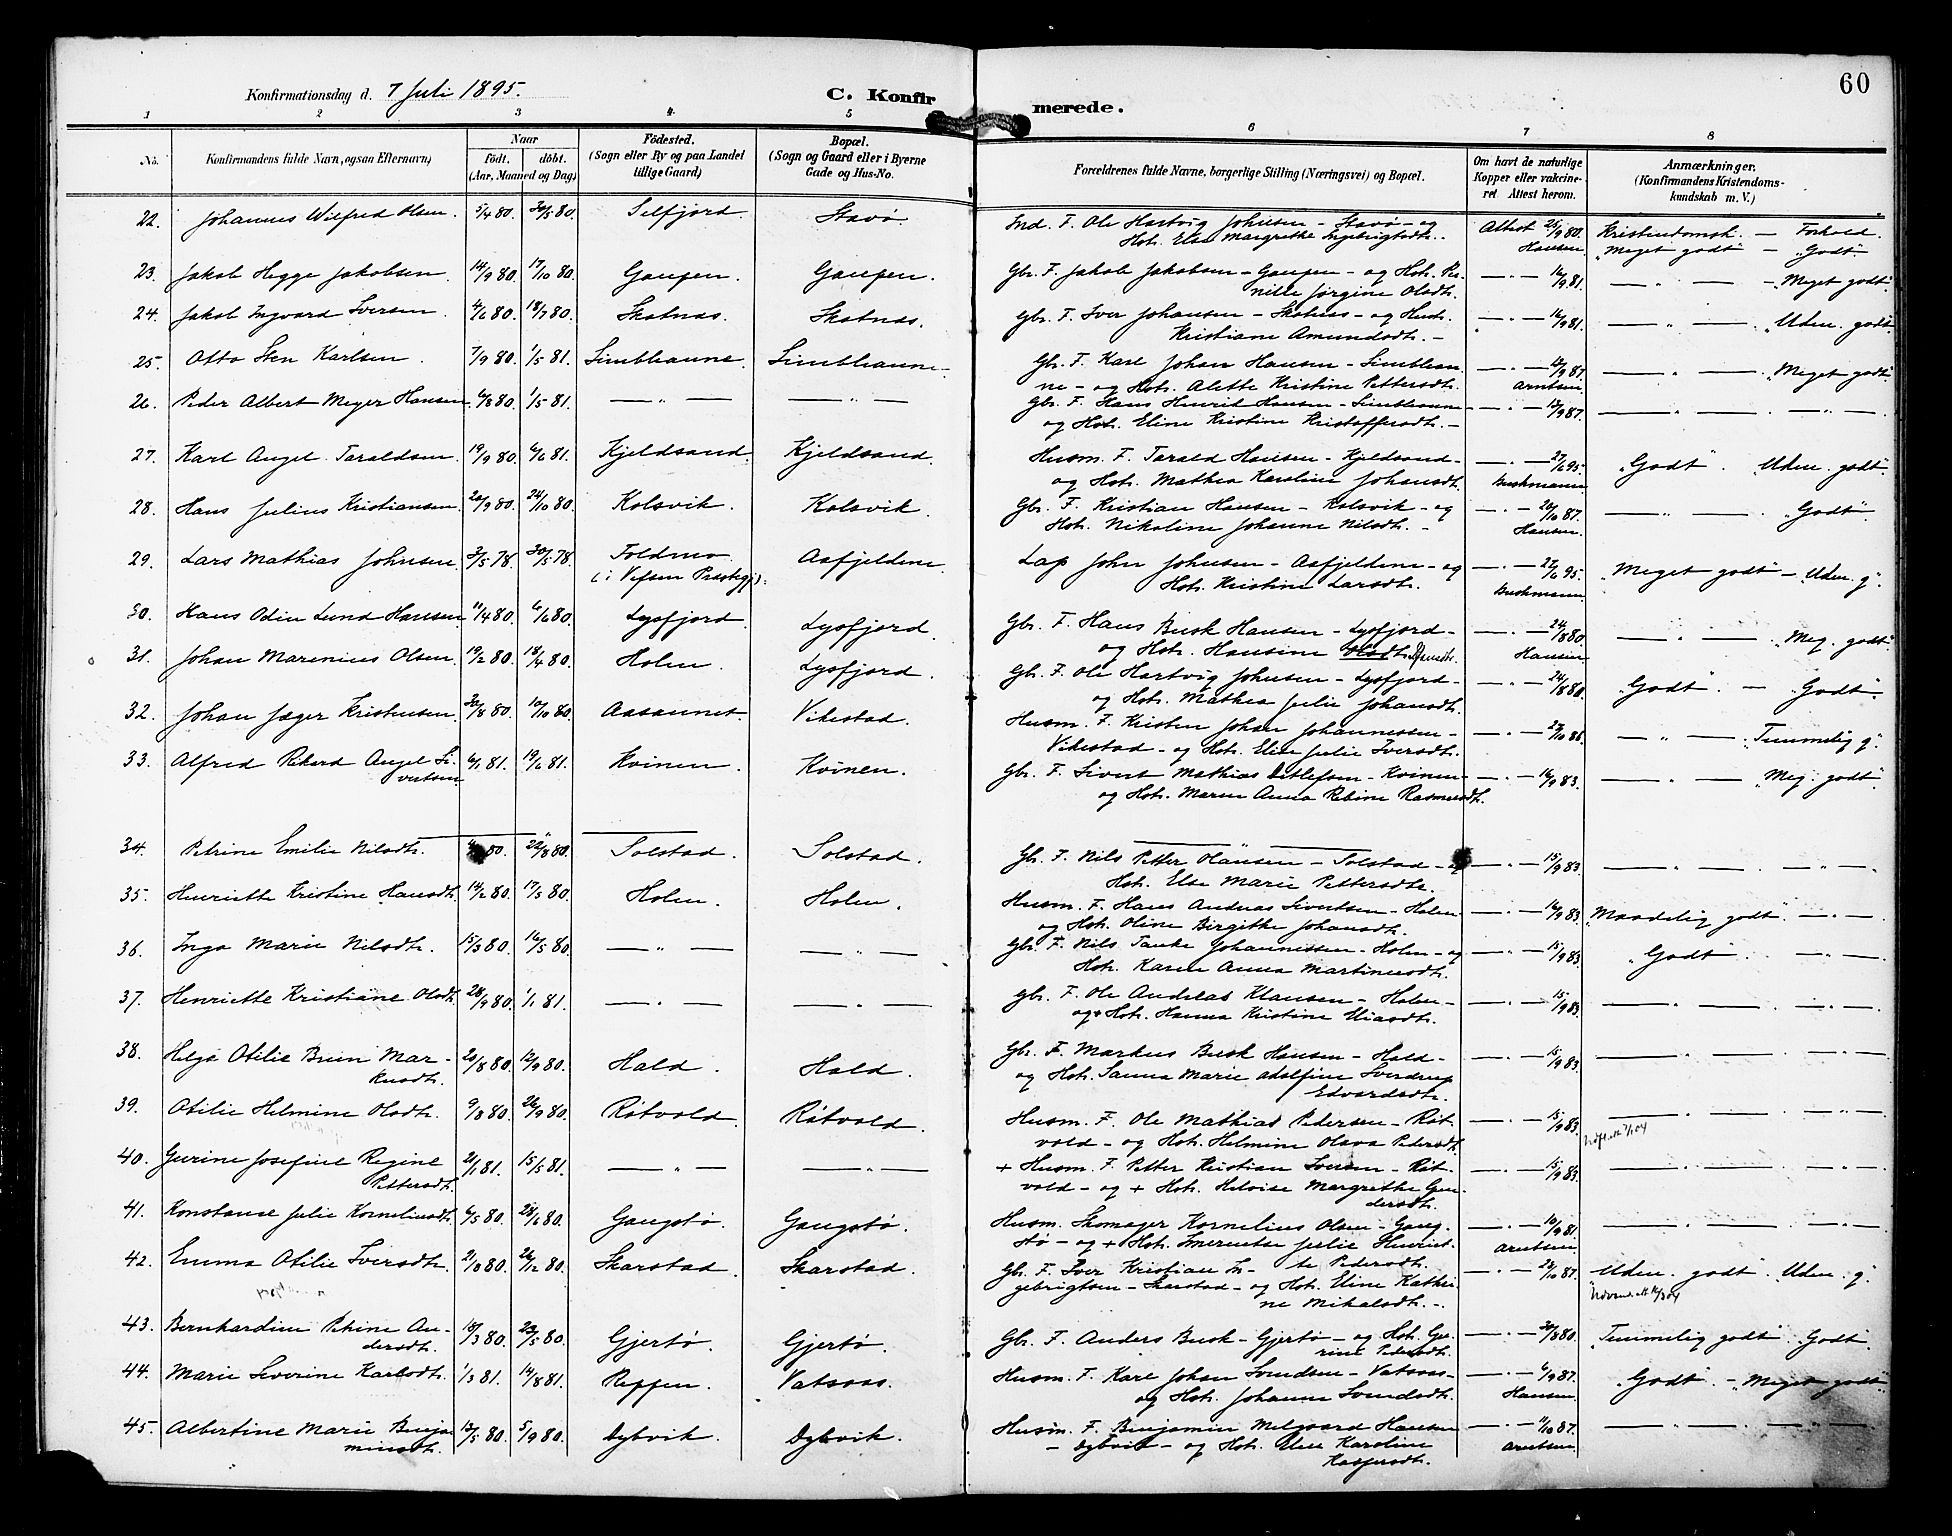 60
Konfirmationsdag d. 7 Juli 1895.
C. Konfirmerede.
1 2 3 4. 5 6 7 8
No. Konfirmandens fulde Navn, ogsaa Efternavn) Naar født. døbt. (Aar, Maaned og Dag)
Fødested. (Sogn eller By og paa Landet tillige Gaard)
Bopæl. (Sogn og Gaard eller i Byerne Gade og Hus-No.
Forældrenes fulde Navne, borgerlige Stilling (Næringsvei) og Bopæl.
Om havt de naturlige Kopper eller vakcineret Attest herom.
Anmærkninger. (Konfirmandens Kristendomskundskab m. V.)
22. Johannes Wilfred Olsen. 5/4 80. 30/5 80. Selfjord. Stavø. Ind. F. Ole Hartvig Johnsen – Stavø – og Attest 25/9 80. Kristendomsk. – Forhold.
Hst. Else Margrethe Ingebrigtsdt. – Hansen "Meget godt" – "Godt".
23. Jakob Hegge Jakobsen. 14/9 80. 17/10 80. Gaupen. Gaupen. Gbr. F. Jakob Jakobsen – Gaupen – og Hst. Per- — " — 16/9 81. — " — – "Meget godt".
nille Jørgine Olsdt.
24. Jakob Ingvard Iversen. 4/6 80. 18/7 80. Skotnes. Skotnes. Gbr. F. Iver Johansen – Skotnes – og Hust. — " — 16/9 81. — " — "Uden. godt".
Kristiane Amundsdt. –
25. Otto Sten Karlsen. 7/9 80. 1/5 81. Simbleanne. Simbleanne. Gbr. F. Karl Johan Hansen – Simblean- — " — 12/9 87 — " — "Meget godt".
ne – og Hst. Alette Kristine Pettersdt. Arntsen
26. Peder Albert Meyer Hansen. 6/8 80. 1/5 81. — " — — " — Gbr. F. Hans Henrik Hansen – Simbleanne — " — 13/9 87. — " — — " —
og Hst. Eline Kristine Kristoffersdt. –
27. Karl Angel Taraldsen. 19/9 80. 6/6 81. Kjeldsand. Kjeldsand. Husm. F. Tarald Hansen – Kjeldsand – — " — 27/6 95. "Godt". "Uden. godt".
og Hst. Mathea Karoline Johansdt. Buchmann
28. Hans Julius Kristiansen. 20/9 80. 24/10 80. Kolsvik. Kolsvik. Gbr. F. Kristian Hansen – Kolsvik – og — " — 20/10 87. — " — "Godt".
Hst. Nikoline Johanne Nilsdt. – Hansen
29. Lars Mathias Johnsen. 3/5 78. 30/5 78. Toldmo Aafjeldene Lap John Johnsen – Aafjeldene – og — " — 22/6 95. "Meget godt" – "Uden. g".
(i Vefsen Prestegj). Hst. Kristine Larsdt. Buchmann
30. Hans Odin Lund Hansen 11/4 80. 6/6 80. Lysfjord. Lysfjord. Gbr. F. Hans Busk Hansen – Lysfjord – — " — 24/8 80 — " — "Meg. godt".
og Hst. Hansine Olsdt. Hansdt. Hansen
31. Johan Marenius Olsen. 19/2 80. 18/4 80. Holen. Lysfjord. Gbr. F. Ole Hartvig Johnsen – Lysfjord – — " — 24/8 80. "Godt". – "Godt".
og Hst. Mathea Julie Johansdt.
32. Johan Jæger Kristensen. 30/8 80. 10/10 80. Aasaunet. Vikestad. Husm. F. Kristen Johan Johannessen – — " — 27/10 86. — " — "Temmelig g".
Vikestad – og Hst. Elise Julie Iversdt.
33. Alfred Rikard Angel Si- 6/1 81. 19/6 81. Kvinen. Kvinen. Gbr. F. Sivert Mathias Detlefsen – Kvinen – — " — 16/9 83. — " — "Meg. godt".
vertsen og Hst. Maren Anna Rebine Rasmusdt.
34. Petrine Emilie Nilsdt. 80. 22/8 80. Solstad. Solstad. Gbr. F. Nils Petter Hansen – Solstad – og — " — 15/9 83. — " — — " —
Hst. Else Marie Pettersdt.
35. Henriette Kristine Hansdt. 14/2 80. 17/5 80. Holen. Holen. Husm. F. Hans Andreas Sivertsen – Holen – — " — 16/9 83. "Maadelig godt" — " —
og Hst. Oline Birgitte Johansdt.
36. Inga Marie Nilsdt. 15/3 80. 16/5 80. — " — — " — Gbr. F. Nils Tanke Johannessen – Holen – og — " — 15/9 83. "Godt". — " —
Hst. Karen Anna Martinusdt.
37. Henriette Kristiane Olsdt. 28/9 80. 1/1 81. — " — — " — Gbr. F. Ole Andreas Klausen – Holen – — " — 15/9 83. — " — — " —
og + Hst. Hanna Kristine Eliasdt.
38. Helga Otilie Bruun Mar- 20/8 80. 12/9 80. Hald. Hald. Gbr. F. Markus Busk Hansen – Hald – — " — 15/9 83. — " — — " —
kusdt. og Hst. Sanna Marie Adolfine Sverdrup
Edvardsdt.
39. Otilie Helmine Olsdt. 9/8 80. 26/9 80. Røtvold. Røtvold. Husm. F. Ole Mathias Pedersen – Røt- — " — 15/9 83. — " — — " —
vold – og Hst. Helmine Olava Pedersdt.
40. Gurine Josefine Regine 21/1 81. 15/5 81. — " — — " — + Husm. F. Petter Kristian Iversen – Røt- — " — 15/9 83. — " — — " —
Pettersdt. vold – og + Hst. Heloise Margrethe Gun-
dersdt.
41. Konstanse Julie Korneliusdt. 6/5 80. 28/6 80. Gangstø. Gangstø. Husm. Skomager Kornelius Olsen – Gang- — " — 10/9 81. — " — — " —
stø – og + Hst. Emerentse Julie Henriet- Arntsen
te Pedersdt.
42. Emma Otilie Iversdt. 21/8 80. 26/12 80. Skarstad. Skarstad. Gbr. F. Iver Kristian In- — " — 28/10 87. "Uden. godt". "Uden. g".
gebrigtsen – Skarstad – og Hst. Eline Kathri-
ne Mikalsdt. –
43. Bernhardine Petrine An- 10/3 80. 23/5 80. Gjertø. Gjertø. Gbr. F. Anders Busk – Gjertø – og Hst. Gu- — " — 20/8 80. "Temmelig godt". "Godt".
dersdt. rine Pedersdt.
44. Marie Severine Karlsdt. 1/3 81. 14/8 81. Reppen. Vatsaas. Husm. F. Karl Johan Svendsen – Vatsaas – — " — 6/9 87. "Godt". – "Meget godt".
og Hst. Johanna Svendsdt. Hansen
45. Albertine Marie Benja- 13/5 80. 5/9 80. Dybvik. Dybvik. Husm. F. Benjamin Melgaard Hansen — " — 11/10 87. — " — — " —
minsdt. – Dybvik – og Hst. Elise Karoline Arntsen
Kaspersdt.